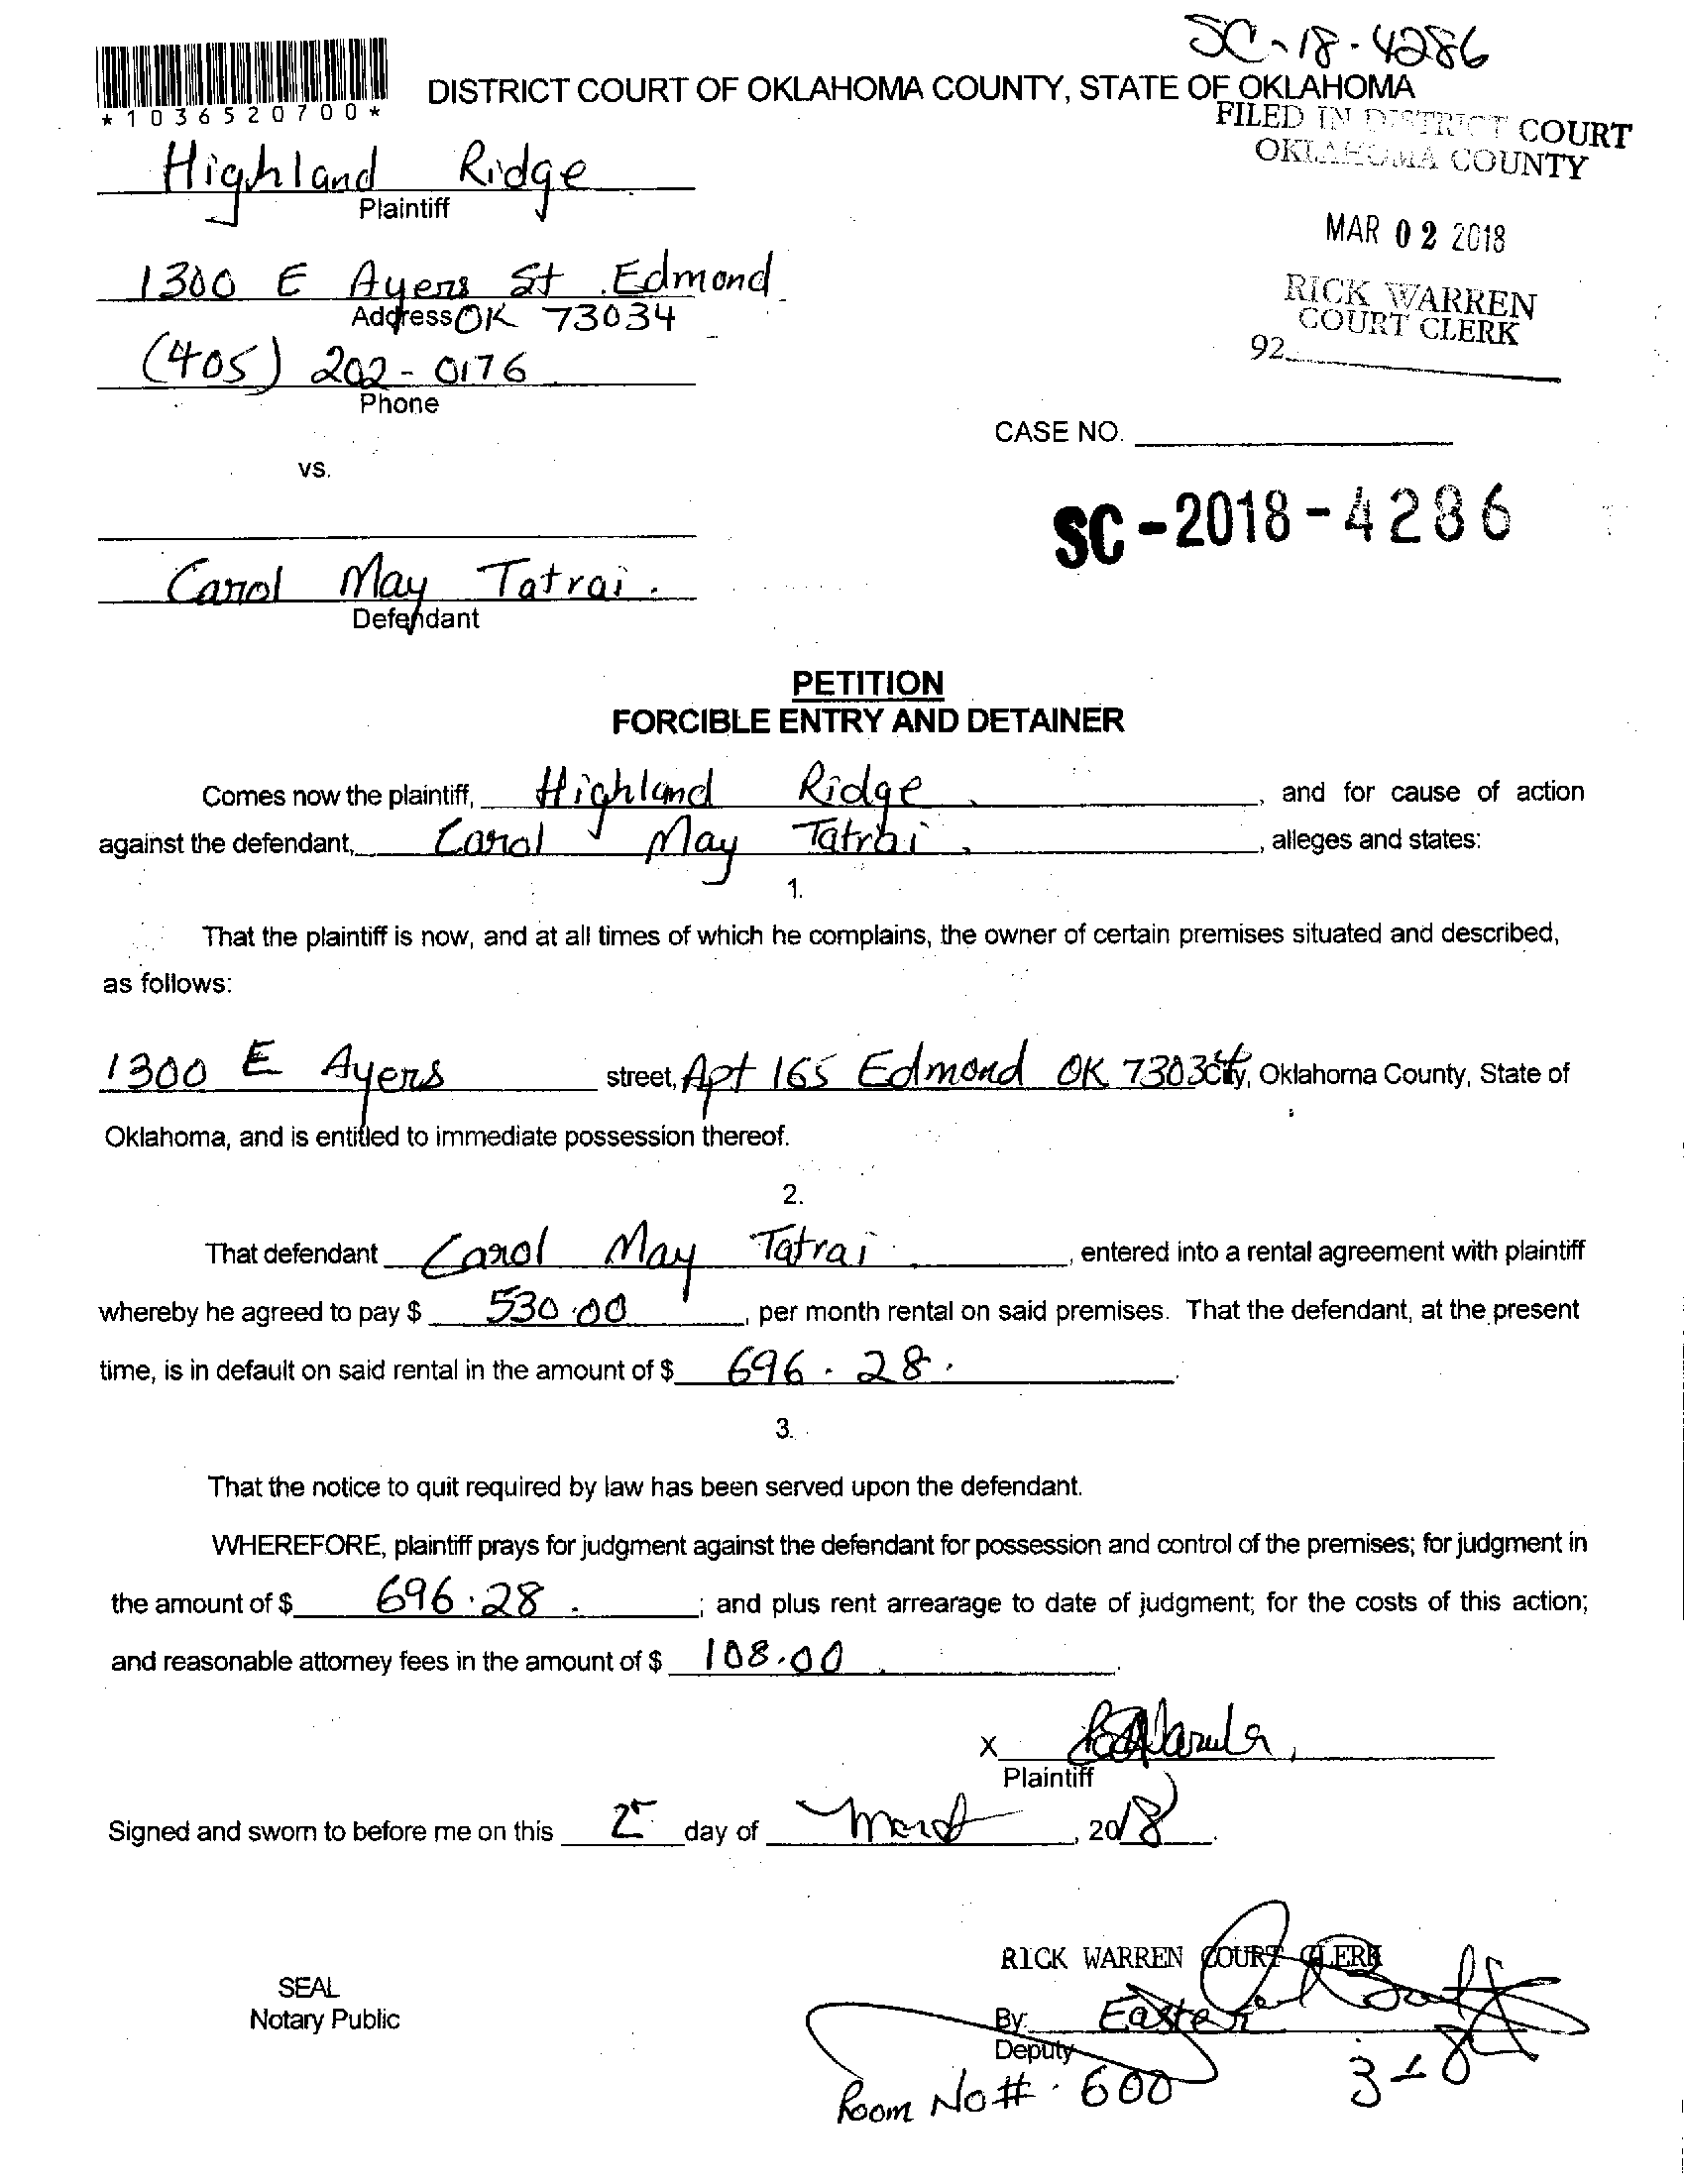 SC-18-4286
*1036520700*
DISTRICT COURT OF OKLAHOMA COUNTY, STATE OF OKLAHOMA
FILED IN DISTRICT COURT
OKLAHOMA COUNTY
Highland Ridge
Plaintiff
MAR 02 2018
1300 E Ayers St Edmond
Address OK 73034
RICK WARREN
COURT CLERK
92
(405) 202-0176
Phone
CASE NO.
vs.
SC-2018-4286
Carol May Tatrai.
Defendant
PETITION
FORCIBLE ENTRY AND DETAINER
Comes now the plaintiff, Highland Ridge, and for cause of action
against the defendant, Carol May Tatrai, alleges and states:
1.
That the plaintiff is now, and at all times of which he complains, the owner of certain premises situated and described,
as follows:
1300 E Ayers street, Apt 165 Edmond OK 73034 City, Oklahoma County, State of
Oklahoma, and is entitled to immediate possession thereof.
2.
That defendant Carol May Tatrai, entered into a rental agreement with plaintiff
whereby he agreed to pay $ 530.00, per month rental on said premises. That the defendant, at the present
time, is in default on said rental in the amount of $ 696.28.
3.
That the notice to quit required by law has been served upon the defendant.
WHEREFORE, plaintiff prays for judgment against the defendant for possession and control of the premises; for judgment in
the amount of $ 696.28.; and plus rent arrearage to date of judgment; for the costs of this action;
and reasonable attorney fees in the amount of $ 108.00.
X
Plaintiff
Signed and sworn to before me on this 2 day of March, 2018.
RICK WARREN COURT CLERK
SEAL
Notary Public
By:
Deputy
Room No# 600